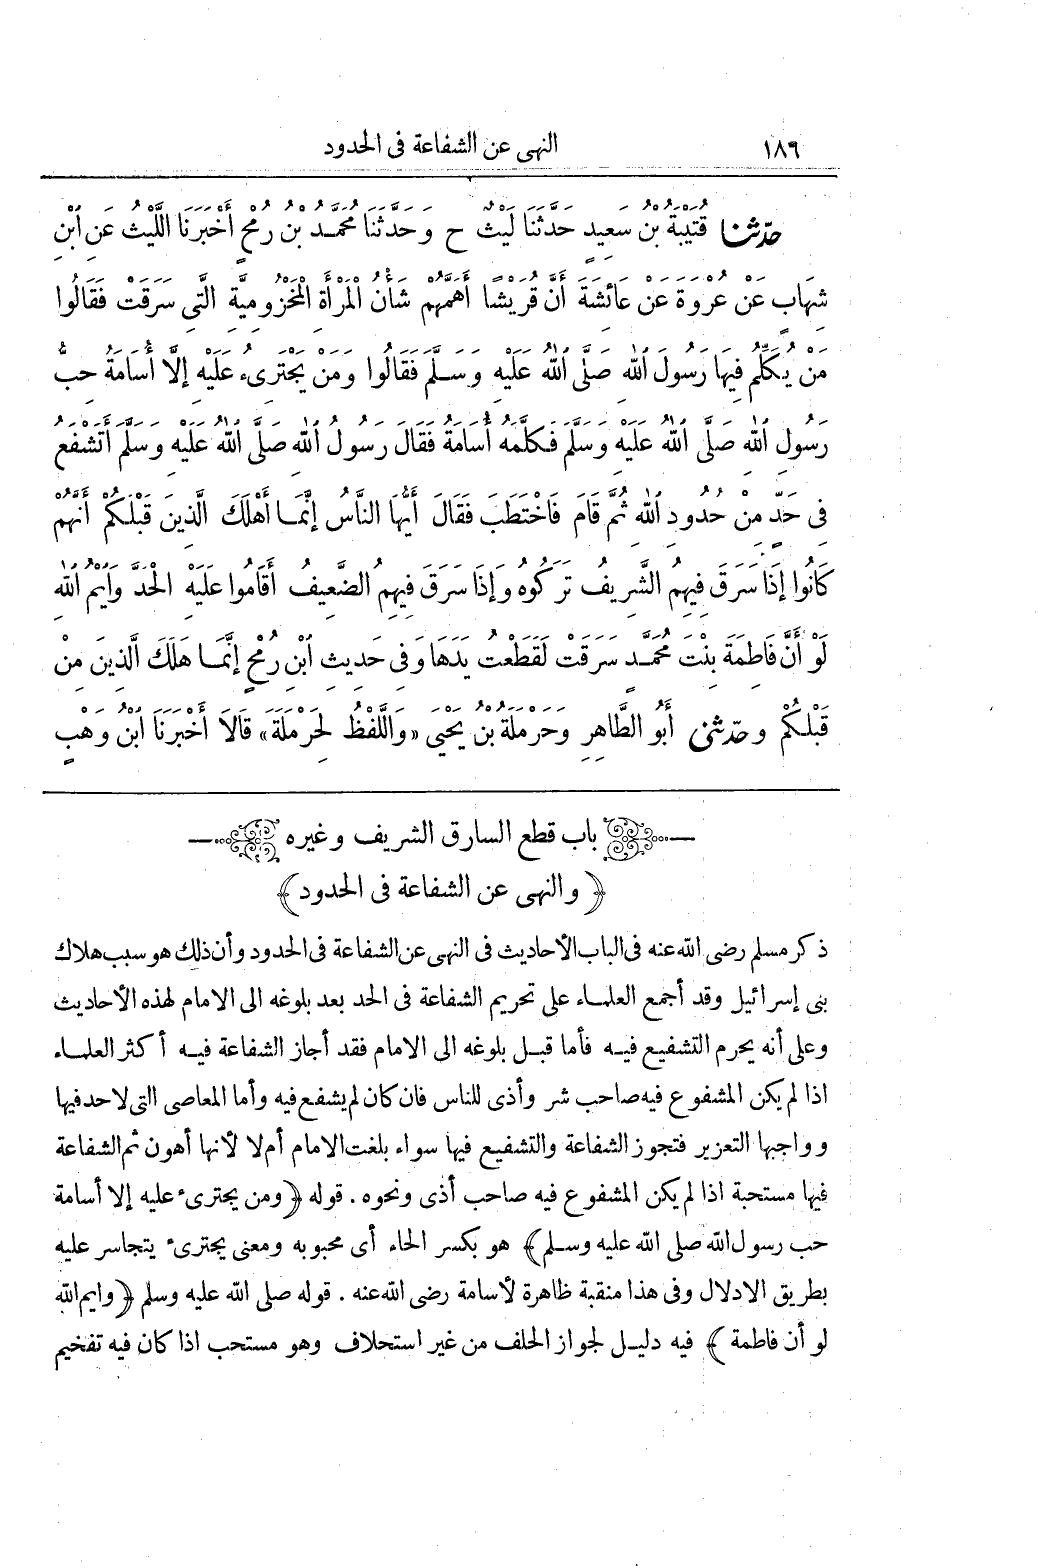 ١٨٦ النهى عن الشفاعة فى الحدود
حدّثنا قُتَيْبَةُ بْنُ سَعِيدٍ حَدَّثَنَا لَيْثٌ ح وَحَدَّثَنَا مُحَمَّدُ بْنُ رُمْحٍ أَخْبَرَنَا اللَّيْثُ عَنِ ابْنِ
شِهَابٍ عَنْ عُرْوَةَ عَنْ عَائِشَةَ أَنَّ قُرَيْشًا أَهَمَّهُمْ شَأْنُ الْمَرْأَةِ الْمَخْزُومِيَّةِ الَّتِي سَرَقَتْ فَقَالُوا
مَنْ يُكَلِّمُ فِيهَا رَسُولَ اللهِ صَلَّى اللهُ عَلَيْهِ وَسَلَّمَ فَقَالُوا وَمَنْ يَجْتَرِىءُ عَلَيْهِ إِلَّا أُسَامَةُ حِبُّ
رَسُولِ اللهِ صَلَّى اللهُ عَلَيْهِ وَسَلَّمَ فَكَلَّمَهُ أُسَامَةُ فَقَالَ رَسُولُ اللهِ صَلَّى اللهُ عَلَيْهِ وَسَلَّمَ أَتَشْفَعُ
فِى حَدٍّ مِنْ حُدُودِ اللهِ ثُمَّ قَامَ فَاخْتَطَبَ فَقَالَ أَيُّهَا النَّاسُ إِنَّمَا أَهْلَكَ الَّذِينَ قَبْلَكُمْ أَنَّهُمْ
كَانُوا إِذَا سَرَقَ فِيهِمُ الشَّرِيفُ تَرَكُوهُ وَإِذَا سَرَقَ فِيهِمُ الضَّعِيفُ أَقَامُوا عَلَيْهِ الْحَدَّ وَايْمُ اللهِ
لَوْ أَنَّ فَاطِمَةَ بِنْتَ مُحَمَّدٍ سَرَقَتْ لَقَطَعْتُ يَدَهَا وَفِى حَدِيثِ ابْنِ رُمْحٍ إِنَّمَا هَلَكَ الَّذِينَ مِنْ
قَبْلِكُمْ وحدّثنى أَبُو الطَّاهِرِ وَحَرْمَلَةُ بْنُ يَحْيَى «وَاللَّفْظُ لِحَرْمَلَةَ» قَالَا أَخْبَرَنَا ابْنُ وَهْبٍ
باب قطع السارق الشريف وغيره
﴿ والنهى عن الشفاعة فى الحدود ﴾
ذكر مسلم رضى الله عنه فى الباب الأحاديث فى النهى عن الشفاعة فى الحدود وأن ذلك هو سبب هلاك
بنى إسرائيل وقد أجمع العلماء على تحريم الشفاعة فى الحد بعد بلوغه الى الامام لهذه الأحاديث
وعلى أنه يحرم التشفيع فيه فأما قبل بلوغه الى الامام فقد أجاز الشفاعة فيه أكثر العلماء
اذا لم يكن المشفوع فيه صاحب شر وأذى للناس فان كان لم يشفع فيه وأما المعاصى التى لاحد فيها
وواجبها التعزير فتجوز الشفاعة والتشفيع فيها سواء بلغت الامام أم لا لأنها أهون ثم الشفاعة
فيها مستحبة اذا لم يكن المشفوع فيه صاحب أذى ونحوه . قوله ﴿ومن يجترىء عليه إلا أسامة
حب رسول الله صلى الله عليه وسلم﴾ هو بكسر الحاء أى محبوبه ومعنى يجترىء يتجاسر عليه
بطريق الادلال وفى هذا منقبة ظاهرة لأسامة رضى الله عنه . قوله صلى الله عليه وسلم ﴿وايم الله
لو أن فاطمة﴾ فيه دليل لجواز الحلف من غير استحلاف وهو مستحب اذا كان فيه تفخيم